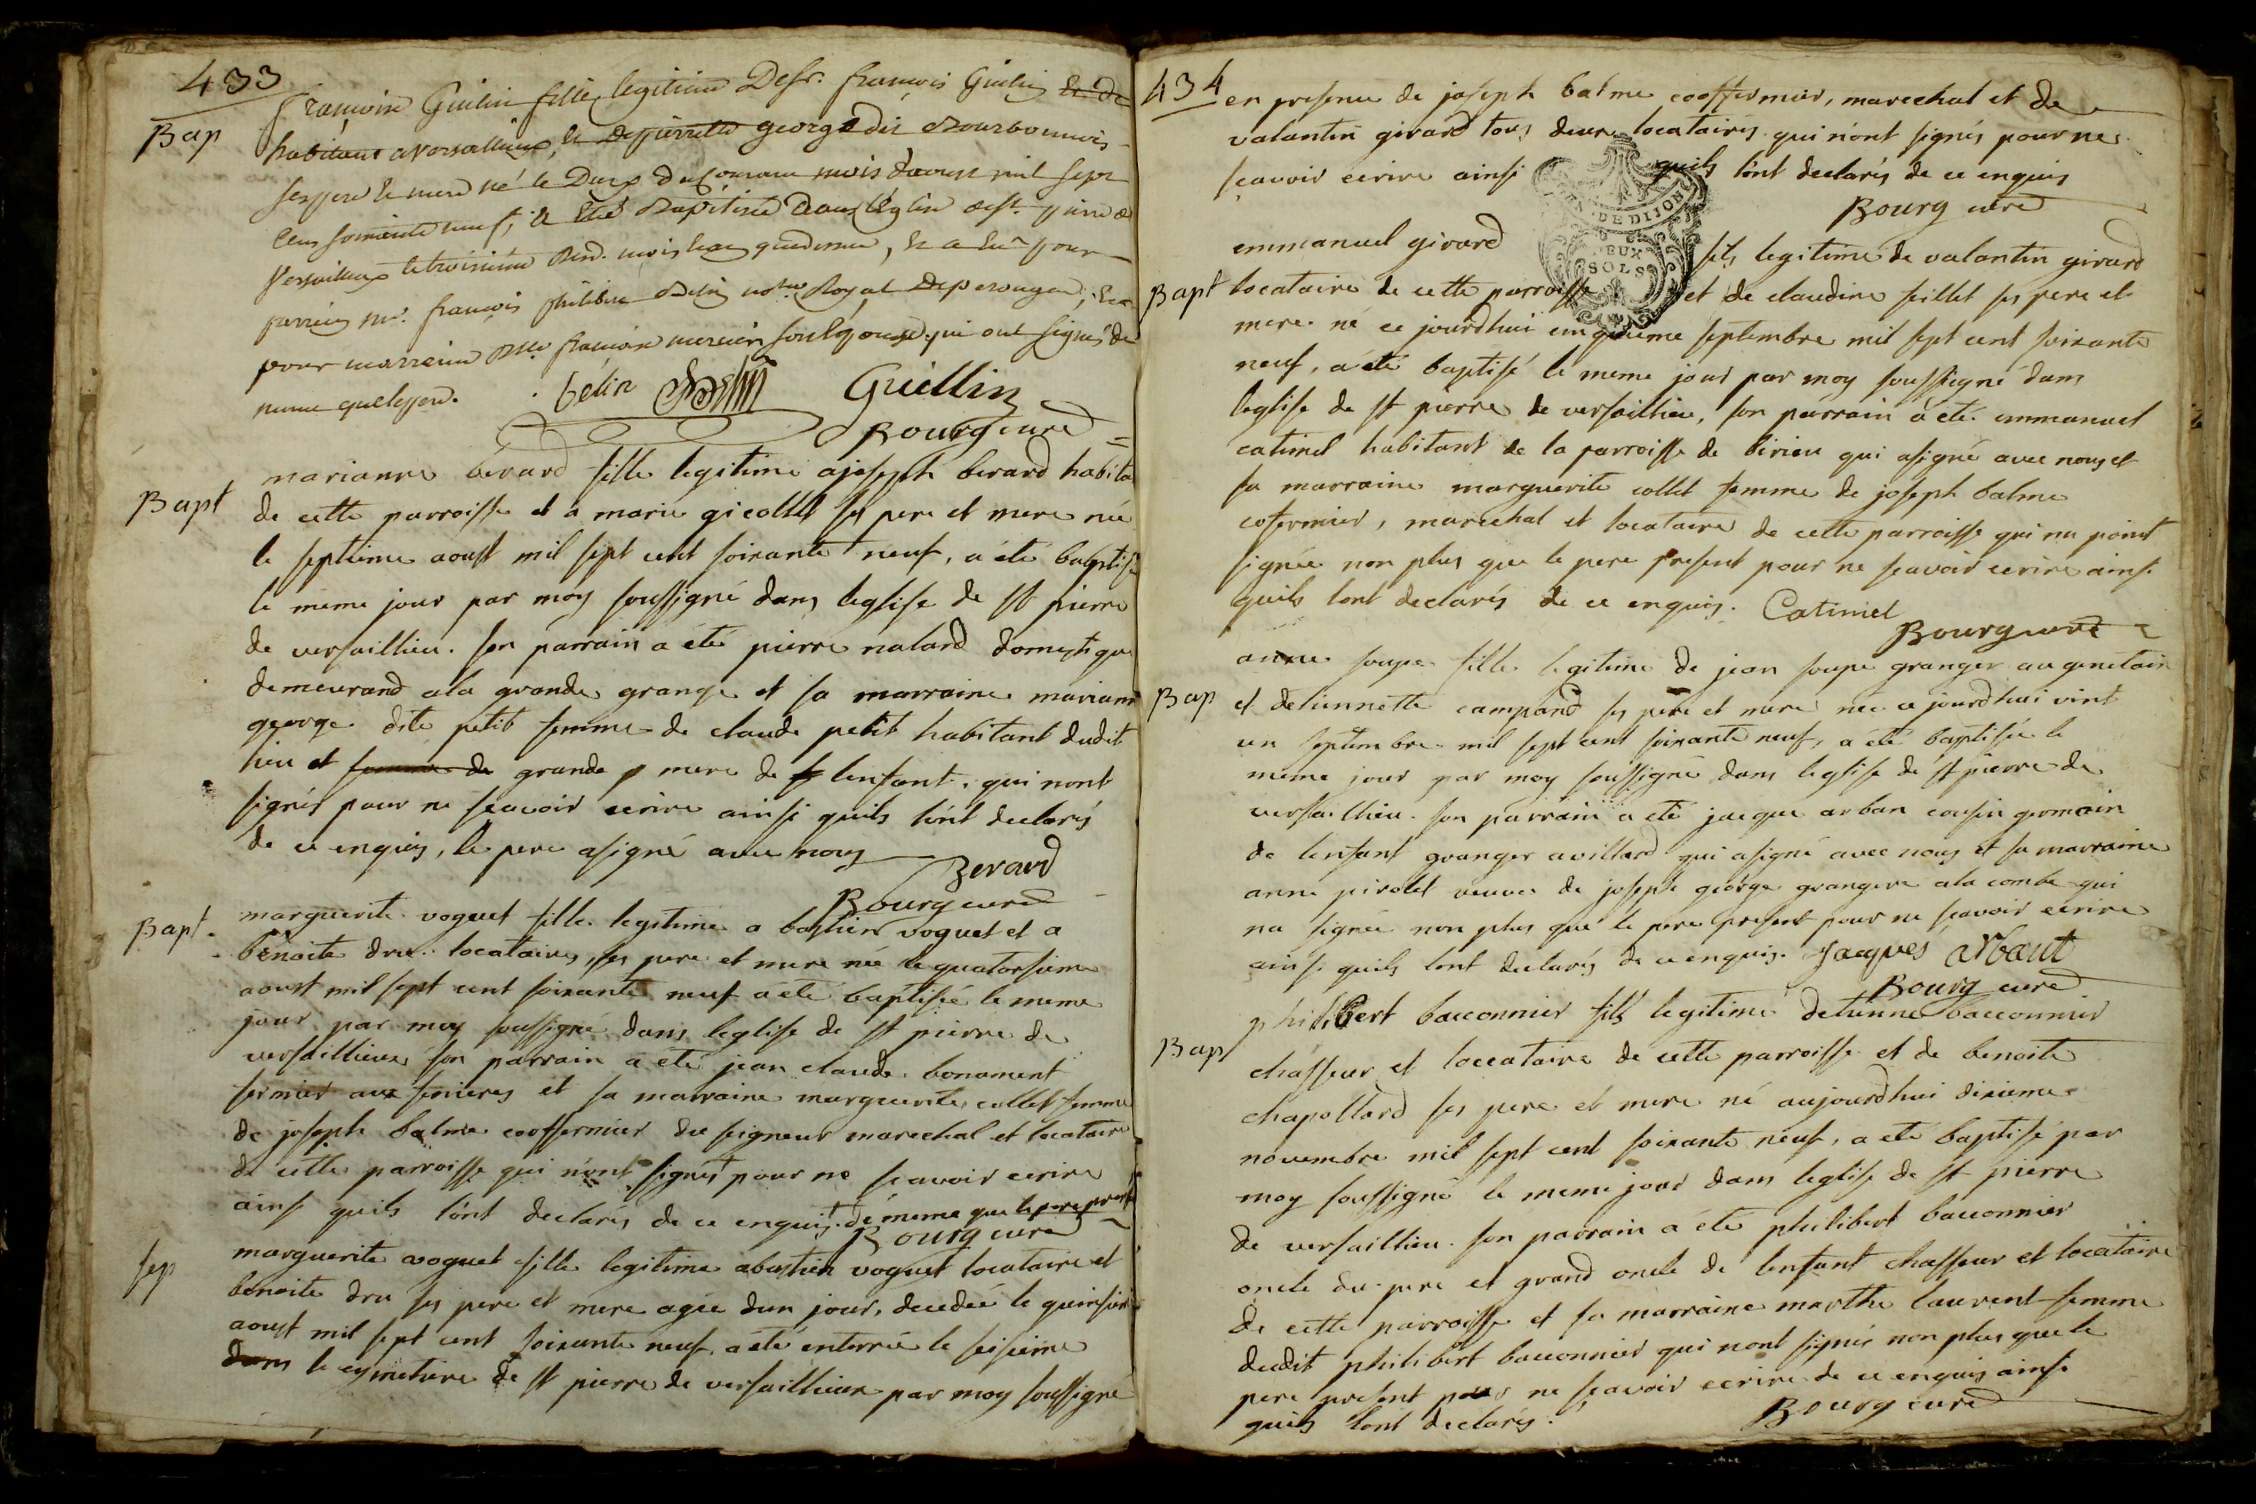 433
Bap
françoise Guilin fille legitime De sr. françois Guilin et de
habitant a versallieux, et de pierrette george dit Bourbonnois
ses pere et mere né le Deux du courant mois d'aoust mil sept
cens soixante neuf, et été Baptisée dans l'église de st. pierre de
versaillieux le troisieme dud. mois
parrein mr. françois philibert Belin notre Royal de perouges, et
pour marraine Dlle françoise mercier son épouse qui ont signés de
meme que le pere. belin Belin Guillin
Bourg curé
Bapt
marianne berard fille legitime a joseph berard habitant
de cette parroisse et a marie gicollet ses pere et mere née
le septieme aoust mil sept cent soixante neuf, a été baptisée
le meme jour par moy soussigné dans leglise de st pierre
de versaillieu. son parrain a été pierre nalard domestique
demeurand a la grande grange et sa marraine marianne
george dite petit femme de claude petit habitant dudit
lieu et femme de grande p mere de lenfant, qui nont
signés pour ne scavoir ecrire ainsi quils l'ont declarés
de ce enquis, le pere a signé avec nous
Berard
Bourg curé
Bapt.
marguerite voguet fille legitime a bastien voguet et a
benoite dru locataires, ses pere et mere née le quatorsieme
aoust mil sept cent soixante neuf a été baptisée le meme
jour par moy soussigné dans leglise de st pierre de
versaillieux son parrain a été jean claude bonament
fermier aux finieres et sa marraine marguerite collet femme
de joseph balme cooffermier du seigneur marechal et locataire
de cette parroisse qui n'ont signés pour ne scavoir ecrire
ainsi quils l'ont declarés de ce enquis. de meme que le pere present
Bourg curé
sep
marguerite voguet fille legitime a bastien voguet locataire et
benoite dru ses pere et mere agée dun jour, decedée le quinsieme
aoust mil sept cent soixante neuf, a été enterrée le seisieme
dans le cymetiere de st pierre de versaillieux par moy soussigné
434
en presence de joseph balme cooffermier, marechal et de
valantin girard tous deux locataires qui n'ont signés pour ne
scavoir ecrire ainsi quils l'ont declarés de ce enquis
Bourg curé
GEN. DE DIJON
DEUX
SOLS
Bapt
emmanuel girard fils legitime de valantin girard
locataire de cette parroisse et de claudine feillet ses pere et
mere né ce jourdhui cinquieme septembre mil sept cent soixante
neuf, a été baptisé le meme jour par moy soussigné dans
leglise de st pierre de versaillieu, son parrain a été emmanuel
catinel habitant de la parroisse de birieu qui a signé avec nous et
sa marraine marguerite collet femme de joseph balme
cofermier, marechal et locataire de cette parroisse qui na point
signée non plus que le pere present pour ne scavoir ecrire ainsi
quils lont declarés de ce enquis. Catimel
Bourg curé
Bap
anne soupe fille legitime de jean soupe granger au genetain
et detiennette campand ses pere et mere née ce jourdhui vint
un septembre mil sept cent soixante neuf, a été baptisée le
meme jour par moy soussigné dans leglise de st pierre de
versaillieu. son parrain a été jacque arban cousin germain
de lenfant granger a villard qui a signé avec nous et sa marraine
anne pirolet veuve de joseph george grangere a la combe qui
na signée non plus que le pere present pour ne scavoir ecrire
ainsi quils lont declarés de ce enquis. Jacques Arbaut
Bourg curé
Bap
philibert bacconnier fils legitime detienne bacconnier
chasseur et loccataire de cette parroisse et de benoite
chapollard ses pere et mere né aujourdhui dixieme
novembre mil sept cent soixante neuf, a été baptisé par
moy soussigné le meme jour dans leglise de st pierre
de versaillieu. son parrain a été philibert bacconnier
oncle du pere et grand oncle de lenfant chasseur et locataire
de cette parroisse et sa marraine marthe laurent femme
dudit philibert bacconnier qui nont signés non plus que le
pere present pour ne scavoir ecrire de ce enquis ainsi
quils lont declarés.
Bourg curé